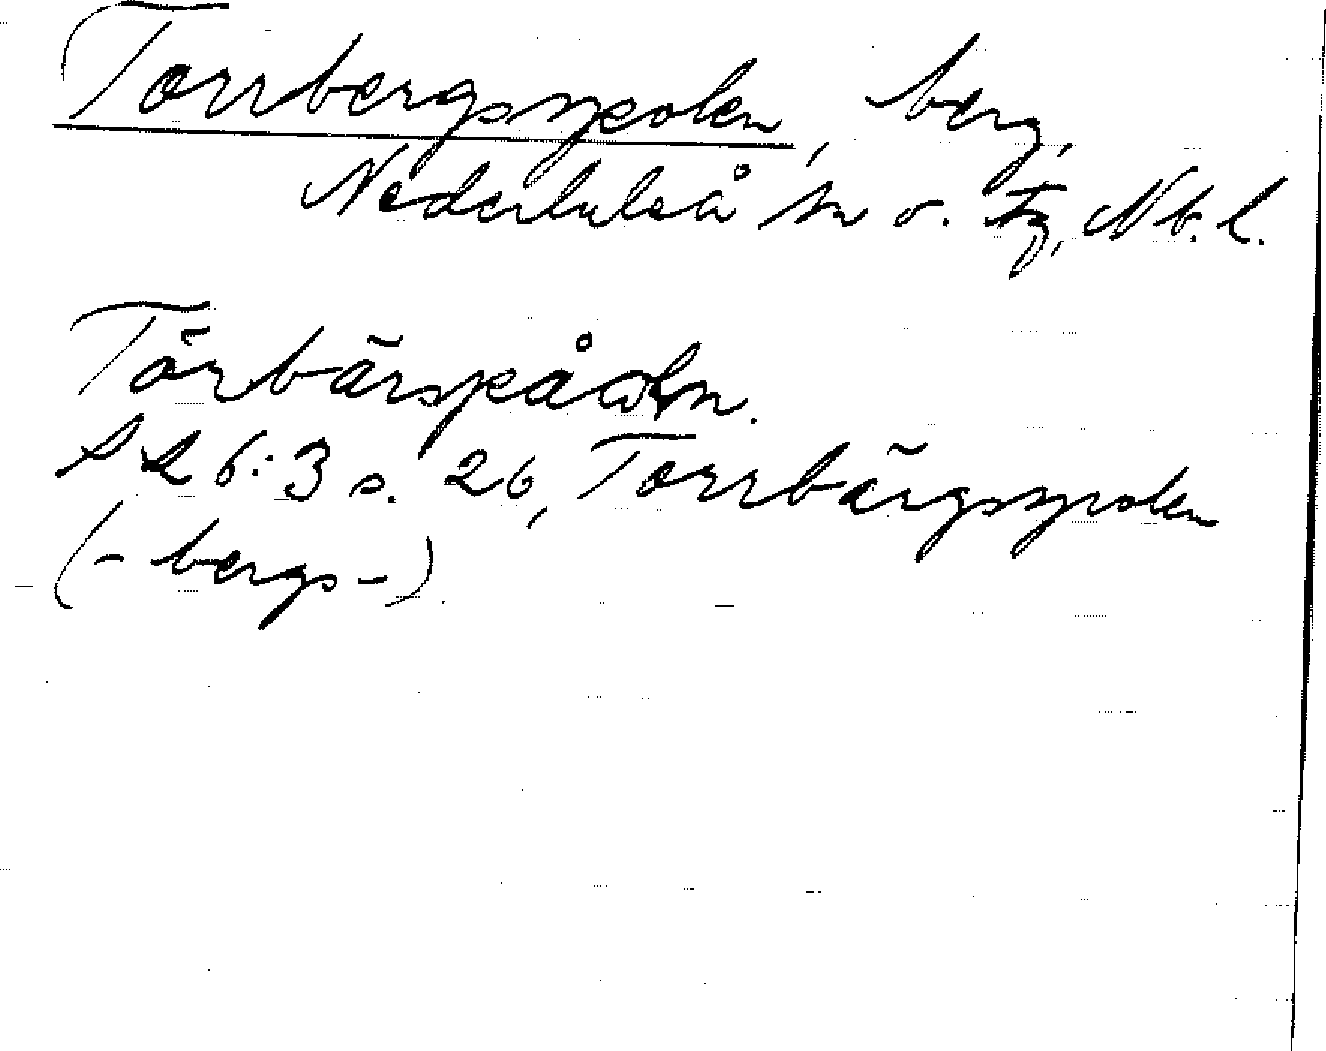 Torrbergsspolen, berg,
Nederluleå sn o. tg, Nb. l.
Tōrbārspåoln.
S L 6:3 s. 26, Torrbärgsspolen
(-bergs-)